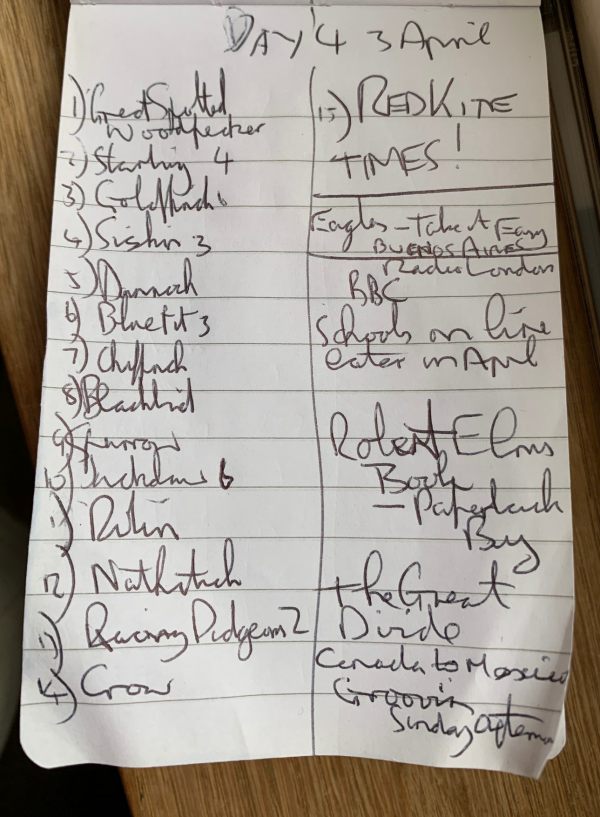 DAY 4 3 April
1) Great Spotted
Woodpecker
2) Starling 4
3) Goldfinch 6
4) Siskin 3
5) Dunnock
6) Bluetit 3
7) Chaffinch
8) Blackbird
9) Sparrow
10) 6
11) Robin
12) Nuthatch
13) Racing Pidgeon 2
14) Crow
15) RED KITE
TIMES!
Eagles - Take it Easy
BUENOS AIRES
Radio London
BBC
Schools on line
later in April
Robert Elms
Book
- Paperback
Buy
The Great
Divide
Canada to Mexico
Groovin
Sunday afternoon